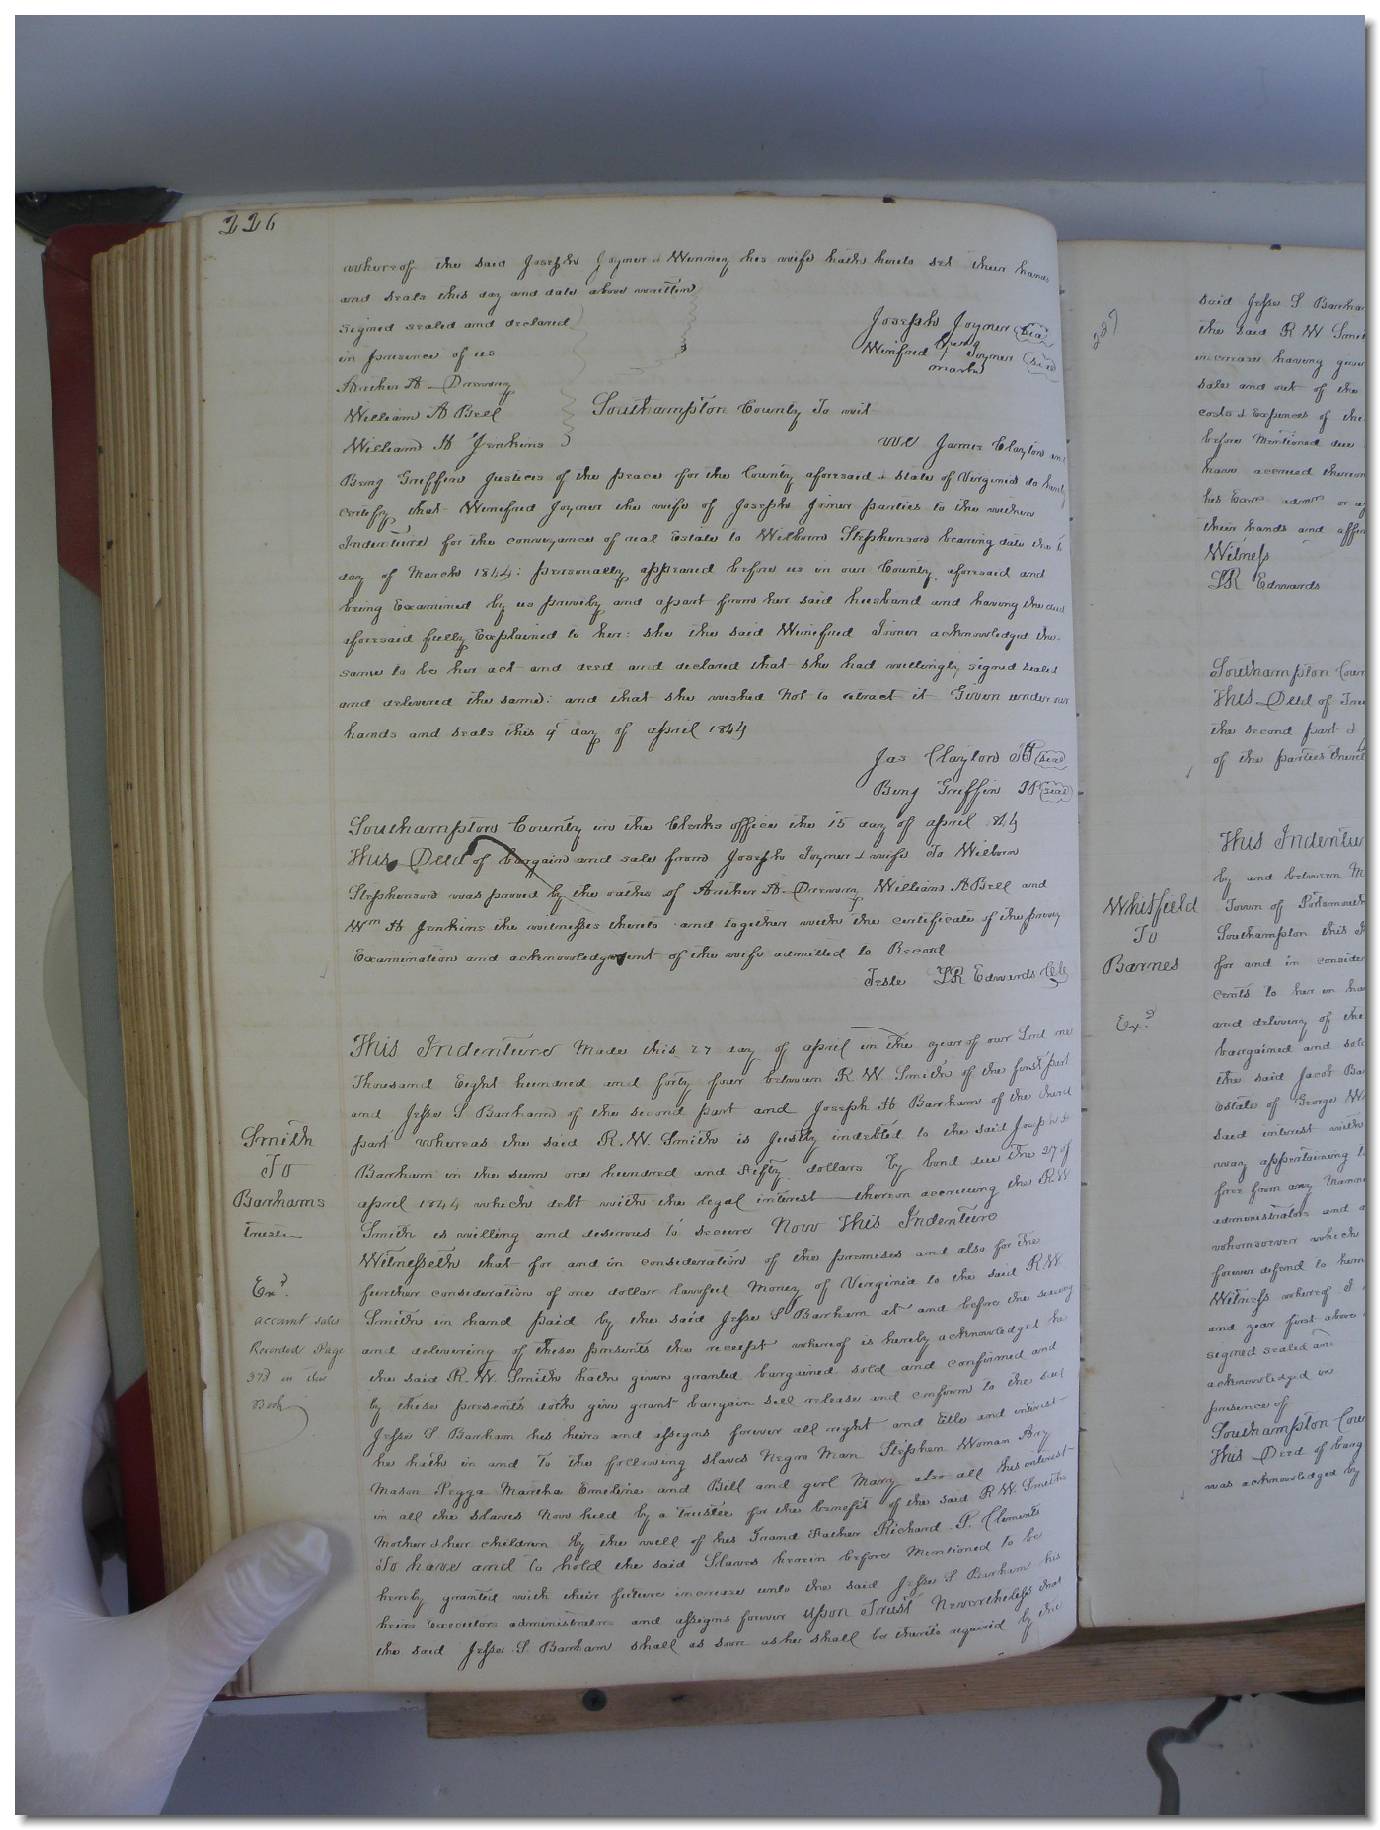 226
whereof the said Joseph Joyner & Winney his wife hath hereto set their hands
and seals this day and date above written
Signed sealed and declared
in presence of us
Archer A. Drewery
William A Bell
William H Jenkins
Joseph Joyner seal
Winifred Joyner seal
her
mark
Southampton County To wit
We James Clayton and
Benj Griffin Justices of the peace for the County aforesaid & State of Virginia do hereby
certify that Winefred Joyner the wife of Joseph Joiner parties to the within
Indenture for the conveyance of real Estate to Wilborn Stephenson bearing date the
day of March 1844: personally appeared before us in our County aforesaid and
being Examined by us privily and apart from her said husband and having the deed
aforesaid fully Explained to her: she the said Winefred Joiner acknowledged the
same to be her act and deed and declared that she had willingly signed sealed
and delivered the same: and that she wished not to retract it Given under our
hands and seals this 9 day of april 1844
Jas Clayton JP seal
Benj Griffin JP seal
Southampton County in the Clerks office the 15 day of april 1844
This Deed of bargain and sale from Joseph Joyner & wife To Wilborn
Stephenson was proved by the oaths of Archer A. Drewery William A Bell and
Wm H Jenkins the witnesses thereto and together with the certificate of the privy
Examination and acknowledgment of the wife admitted to Record
Teste LR Edwards Clk
This Indenture Made this 27 day of april in the year of our Lord one
Thousand Eight hundred and forty four between R. W. Smith of the first part
and Jesse S Barham of the second part and Joseph H Barham of the third
part whereas the said R. W. Smith is justly indebted to the said Joseph H
Barham in the sum one hundred and fifty dollars by bond due the 27 of
april 1844 which debt with the legal interest thereon accruing the R.W
Smith is willing and desirous to secure Now This Indenture
Witnesseth that for and in consideration of the premises and also for the
further consideration of one dollar lawful Money of Virginia to the said R.W.
Smith in hand paid by the said Jesse S Barham at and before the sealing
and delivering of these presents the receipt whereof is hereby acknowledged he
the said R. W. Smith hath given granted bargained sold and confirmed and
by these presents doth give grant bargain sell release and confirm to the said
Jesse S Barham his heirs and assigns forever all right and title and interest
he hath in and to the following slaves Negro Man Stephen Woman Any
Mason Pegga Martha Emeline and Bill and girl Mary also all his interest
in all the slaves Now held by a Trustee for the benefit of the said R W. Smiths
Mother & her children by the will of his Grand Father Richard P. Clements
To have and to hold the said Slaves herein before Mentioned to be
hereby granted with their future increase unto the said Jesse S Barham his
heirs executors administrators and assigns forever Upon Trust Nevertheless that
the said Jesse S. Barham shall as soon as he shall be thereto required by the
Smith
To
Barhams
Trustee
Exd.
account sales
Recorded Page
373 in this
Book
227
said Jesse S Barham
the said R. W. Smith
increase having given
sale and out of the
costs & Expences of the
before Mentioned due
have accrued thereon
his Exors admors or
their hands and
Witness
LR Edwards
Southampton
This Deed of
the second part &
of the parties
This Indenture
by and between
Town of Portsmouth
Southampton this
for and in
cents to her in
and delivery of the
bargained and sold
the said Jacob
Estate of George
said interest with
way appertaining
free from any
administrators and
whomsoever which
forever defend to
Witness whereof I
and year first above
signed sealed and
acknowledged in
presence of
Southampton
This Deed of
was acknowledged by
Whitfield
To
Barnes
Exd.